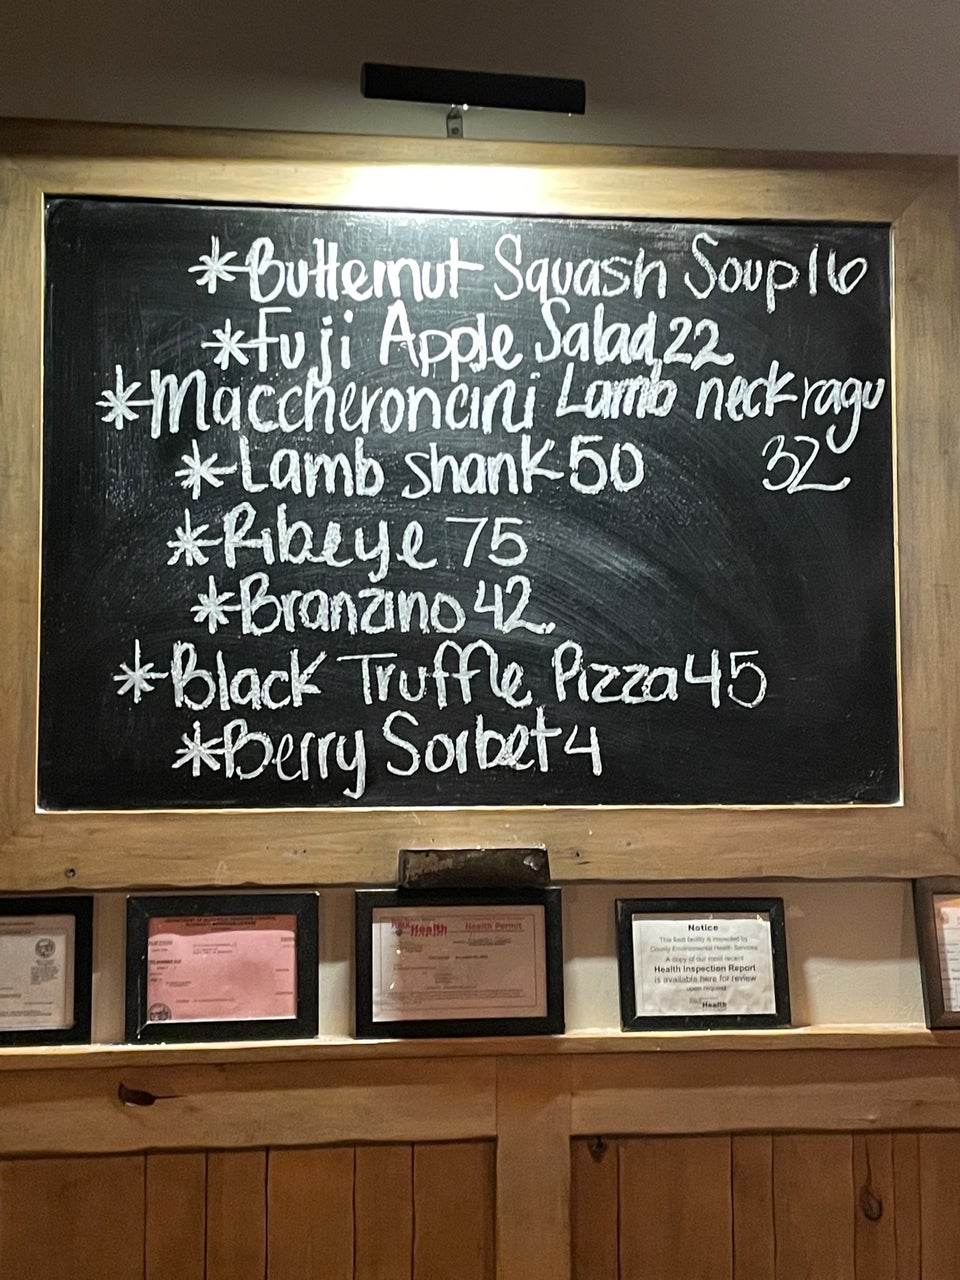 *Butternut Squash Soup 16
*Fuji Apple Salad 22
*Maccheroncini Lamb neck ragu
32
*Lamb shank 50
*Ribeye 75
*Branzino 42
*Black Truffle Pizza 45
*Berry Sorbet 4
Health
Health Permit
Notice
This food facility is inspected by
County Environmental Health Services
A copy of our most recent
Health Inspection Report
is available here for review
upon request
Health